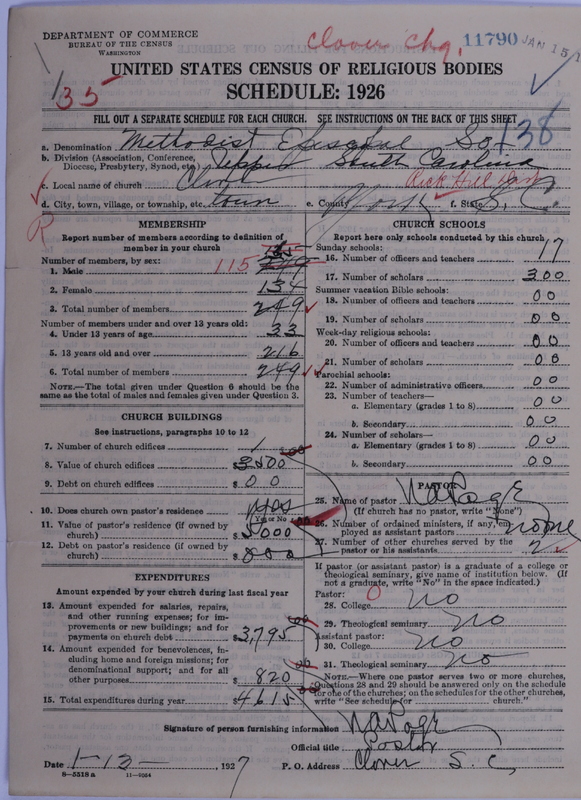 DEPARTMENT OF COMMERCE
BUREAU OF THE CENSUS
WASHINGTON
Clover Chg.
11790 JAN 15
135
UNITED STATES CENSUS OF RELIGIOUS BODIES
SCHEDULE: 1926
FILL OUT A SEPARATE SCHEDULE FOR EACH CHURCH. SEE INSTRUCTIONS ON THE BACK OF THIS SHEET
138
a. Denomination Methodist Episcopal So.
b. Division (Association, Conference, Diocese, Presbytery, Synod, etc.) Upper South Carolina
Rock Hill Dist
c. Local name of church Clover
d. City, town, village, or township, etc. town e. County York f. State S. C.
R
MEMBERSHIP
Report number of members according to definition of member in your church
Number of members, by sex:
1. Male 115
2. Female 134
3. Total number of members 249
Number of members under and over 13 years old:
4. Under 13 years of age 33
5. 13 years old and over 216
6. Total number of members 249
NOTE.—The total given under Question 6 should be the same as the total of males and females given under Question 3.
CHURCH BUILDINGS
See instructions, paragraphs 10 to 12
7. Number of church edifices 1
8. Value of church edifices $3500
9. Debt on church edifices $00
10. Does church own pastor's residence yes
Yes or No
11. Value of pastor's residence (if owned by church) $5000
12. Debt on pastor's residence (if owned by church) $800
EXPENDITURES
Amount expended by your church during last fiscal year
13. Amount expended for salaries, repairs, and other running expenses; for improvements or new buildings; and for payments on church debt $3,795
14. Amount expended for benevolences, including home and foreign missions; for denominational support; and for all other purposes $820
15. Total expenditures during year $4615
CHURCH SCHOOLS
Report here only schools conducted by this church
Sunday schools:
16. Number of officers and teachers 17
17. Number of scholars 300
Summer vacation Bible schools:
18. Number of officers and teachers 00
19. Number of scholars 00
Week-day religious schools:
20. Number of officers and teachers 00
21. Number of scholars 00
Parochial schools:
22. Number of administrative officers 00
23. Number of teachers—
a. Elementary (grades 1 to 8) 00
b. Secondary 00
24. Number of scholars—
a. Elementary (grades 1 to 8) 00
b. Secondary 00
PASTOR
25. Name of pastor N A Page
(If church has no pastor, write "None")
26. Number of ordained ministers, if any, employed as assistant pastors none
27. Number of other churches served by the pastor or his assistants 2
If pastor (or assistant pastor) is a graduate of a college or theological seminary, give name of institution below. (If not a graduate, write "No" in the space indicated.)
Pastor: 0
28. College no
29. Theological seminary No
Assistant pastor:
30. College No
31. Theological seminary No
NOTE.—Where one pastor serves two or more churches, Questions 28 and 29 should be answered only on the schedule for one of the churches; on the schedules for the other churches, write "See schedule for church."
Signature of person furnishing information N A Page
Official title Pastor
Date 1-13- 1927 P. O. Address Clover S. C,
8-5318a 11-9064